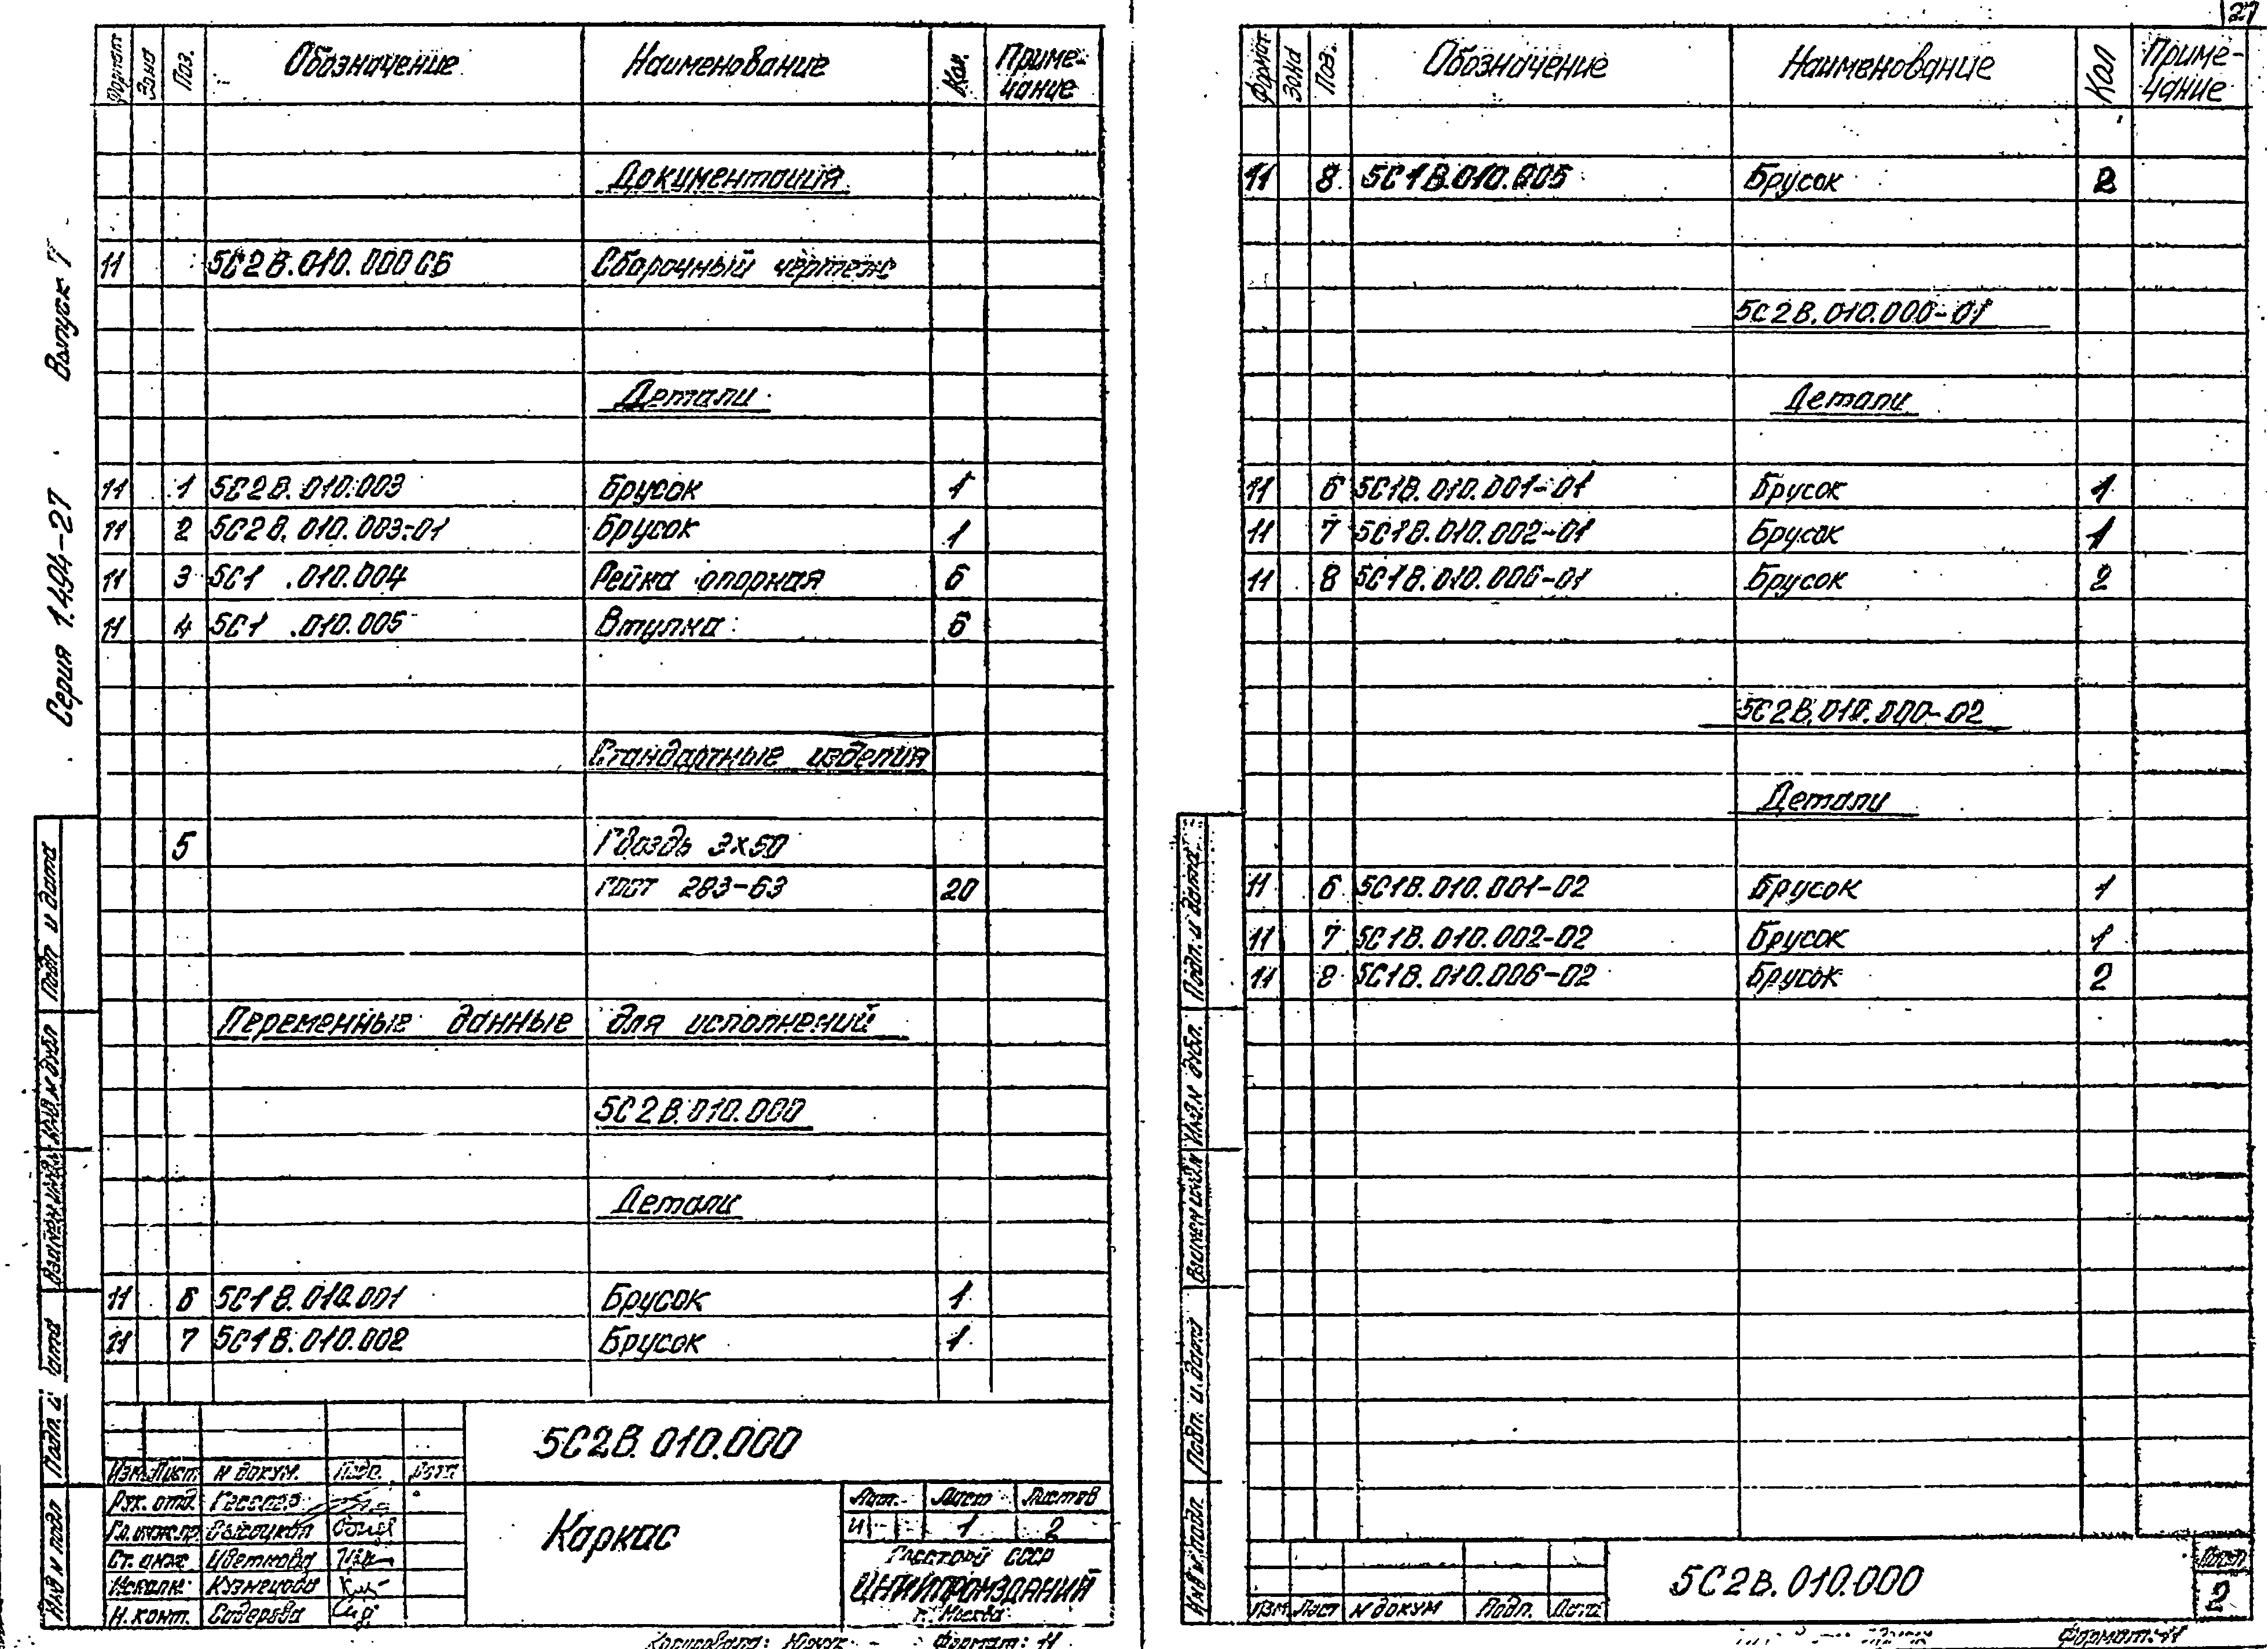 27
Серия 1.494-27 Выпуск 7
Формат Зона Поз. Обозначение Наименование Кол. Приме-
чание
Документация
11 5С2В.010.000СБ Сборочный чертеж
Детали
11 1 5С2В.010.003 Брусок 1
11 2 5С2В.010.003-01 Брусок 1
11 3 5С1 .010.004 Рейка опорная 6
11 4 5С1 .010.005 Втулка 6
Стандартные изделия
5 Гвоздь 3х50
ГОСТ 283-63 20
Переменные данные для исполнений
5С2В.010.000
Детали
11 6 5С1В.010.001 Брусок 1
11 7 5С1В.010.002 Брусок 1
5С2В.010.000
Изм. Лист N докум. Подп. Дата
Рук. отд. Гесслер
Гл. инж. пр. Высоцкая
Ст. инж. Цветкова
Исполн. Кузнецова
Н. конт. Садерова
Каркас
Лит. Лист Листов
И 1 2
Госстрой СССР
ЦНИИПРОМЗДАНИЙ
г. Москва
Копировала: Формат: 11
Инв N подл Подп. и дата Взамен инв. N Инв. N дубл Подп и дата
Формат Зона Поз. Обозначение Наименование Кол Приме-
чание
11 8 5С1В.010.006 Брусок 2
5С2В.010.000-01
Детали
11 6 5С1В.010.001-01 Брусок 1
11 7 5С1В.010.002-01 Брусок 1
11 8 5С1В.010.006-01 Брусок 2
5С2В.010.000-02
Детали
11 6 5С1В.010.001-02 Брусок 1
11 7 5С1В.010.002-02 Брусок 1
11 8 5С1В.010.006-02 Брусок 2
5С2В.010.000
Лист
2
Изм. Лист N докум Подп. Дата
Формат: 11
Инв N подл. Подп. и дата Взамен инв. N Инв. N дубл. Подп. и дата